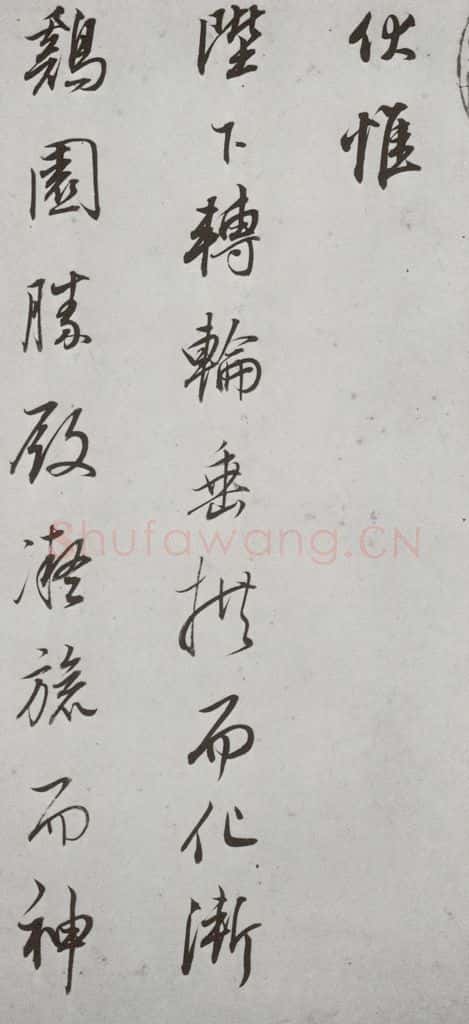 伏惟
陛下轉輪垂拱而化漸
鷄園勝殿凝旒而神
Shufawang.CN